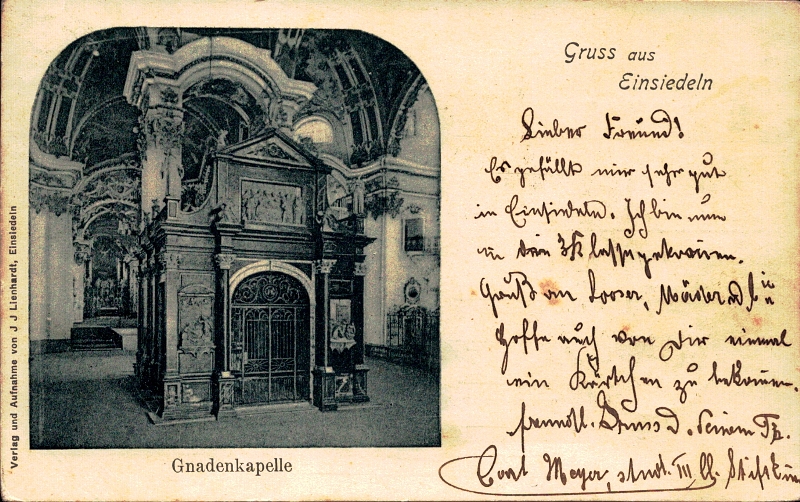 Gruss aus
Einsiedeln
Lieber Freund!
Es gefällt mir sehr gut
in Einsiedeln. Ich bin nun
in die 3 Klasse gekommen.
Gruß an Looser,
Hoffe auch von Dir einmal
ein Kärtchen zu bekommen.
freundl. Gruss d. Deinem
Carl Meyer, stud. III
Gnadenkapelle
Verlag und Aufnahme von J J Lienhardt, Einsiedeln